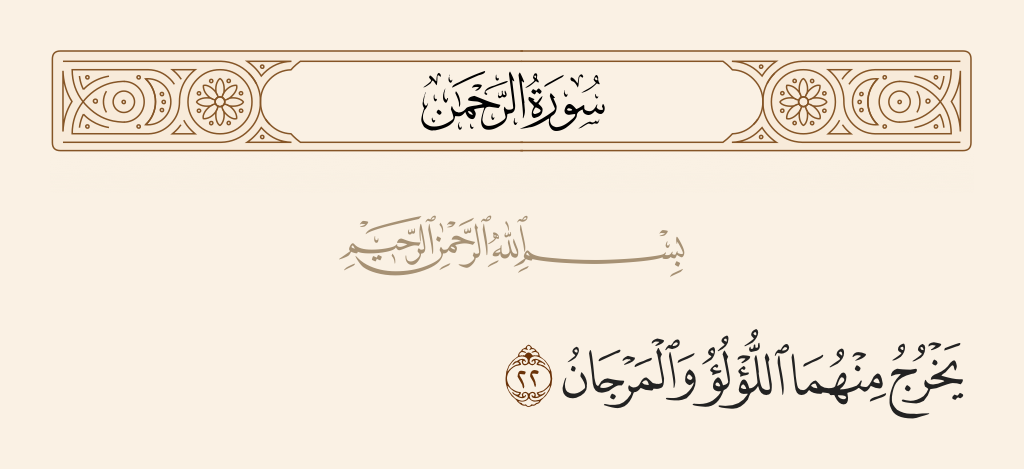 سُورَةُ الرَّحْمَٰن
بِسْمِ ٱللَّهِ ٱلرَّحْمَٰنِ ٱلرَّحِيمِ
يَخْرُجُ مِنْهُمَا ٱللُّؤْلُؤُ وَٱلْمَرْجَانُ ٢٢